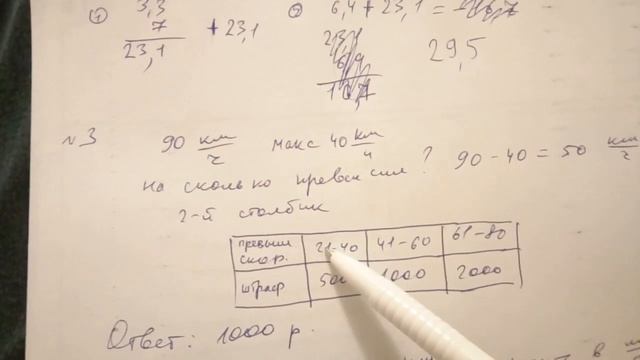 ① 3,3
7
23,1
+ 23,1
② 6,4 + 23,1 =
29,5
№3 90 км/ч макс 40 км/ч
на сколько превысил? 90 - 40 = 50 км/ч
2-й столбик
превыш скор. 21-40 41-60 61-80
штраф 1000 2000
Ответ: 1000 р.
в